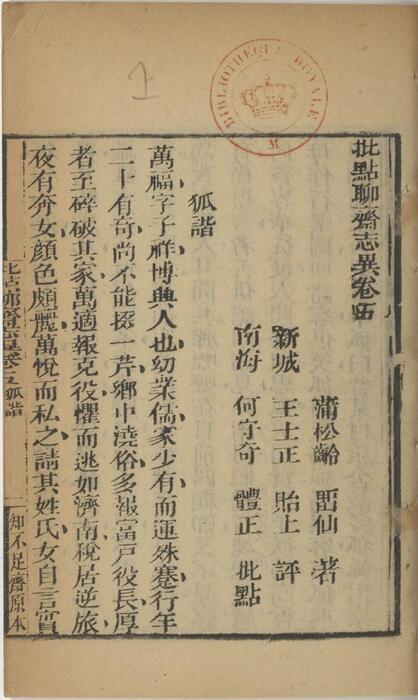 批點聊齋志異卷五
蒲松齡 畱仙 著
新城 王士正 貽上 評
南海 何守奇 體正 批點
狐諧
萬福字子祥博興人也幼業儒家少有而運殊蹇行年
二十有奇尚不能掇一芹鄉中澆俗多報富戶役長厚
者至碎破其家萬適報充役懼而逃如濟南稅居逆旅
夜有奔女顏色頗麗萬悅而私之請其姓氏女自言實
批點聊齋志異卷五 狐諧
知不足齋原本
BIBLIOTHEQUE ROYALE
M
1